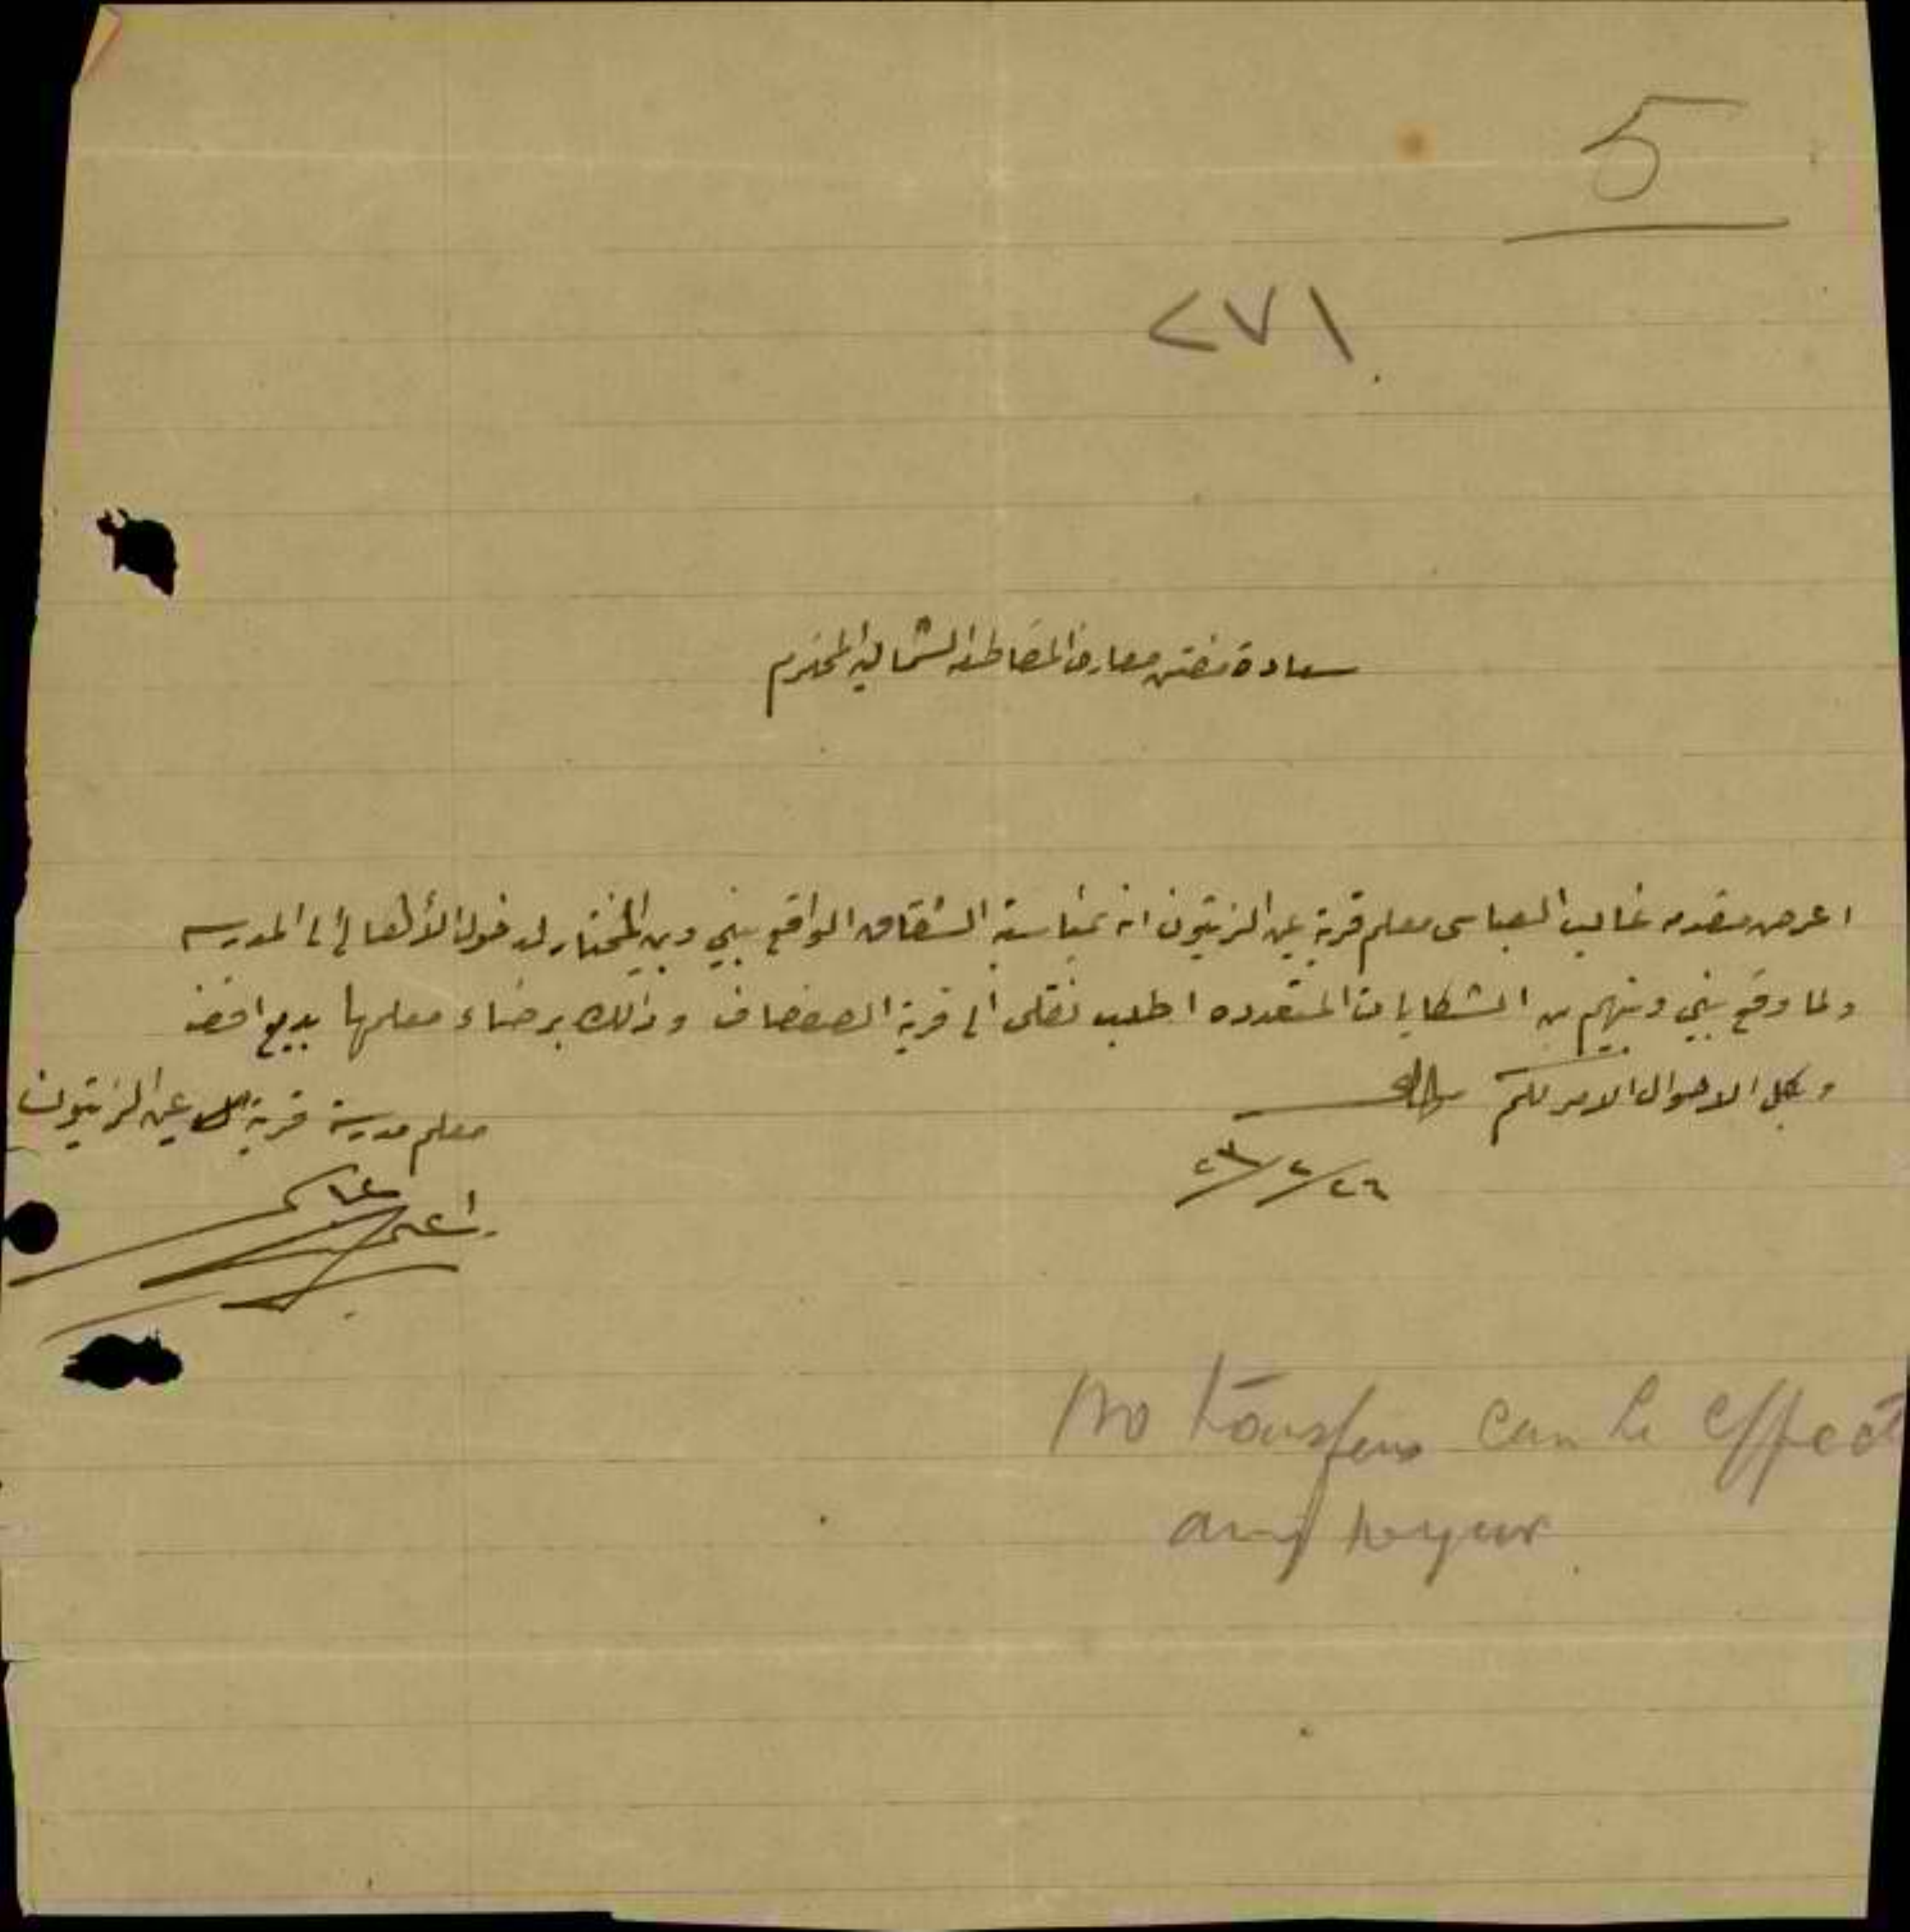 5
٢٧١
سعادة مفتش معارف المقاطعة الشمالية المحترم
اعرض مقدمه غالب العباسي معلم قرية عين الزيتون انه بمناسبة الشقاق الواقع بيني وبين المختار لدخول الأطفال إلى المدرسه
ولما وقع بيني وبينهم من الشكايات المتعدده اطلب نقلي الى قرية الصفصاف وذلك برضاء معلمها بديع
وبكل الاحوال الامر لكم
معلم مدرسة قرية عين الزيتون
٢٦/٢/٢٣
No transfers can be effect